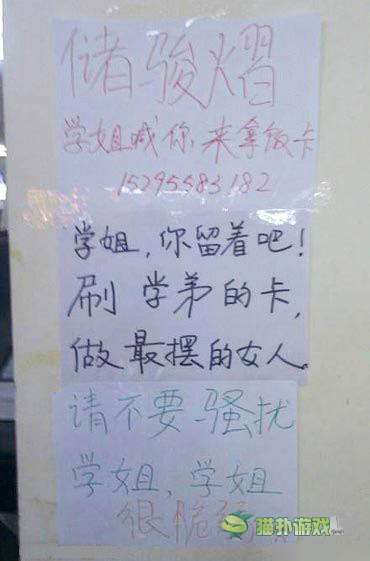 储骏熠
学姐喊你来拿饭卡
15295583182
学姐,你留着吧!
刷学弟的卡,
做最摆的女人。
请不要骚扰
学姐,学姐
很脆
猫扑游戏